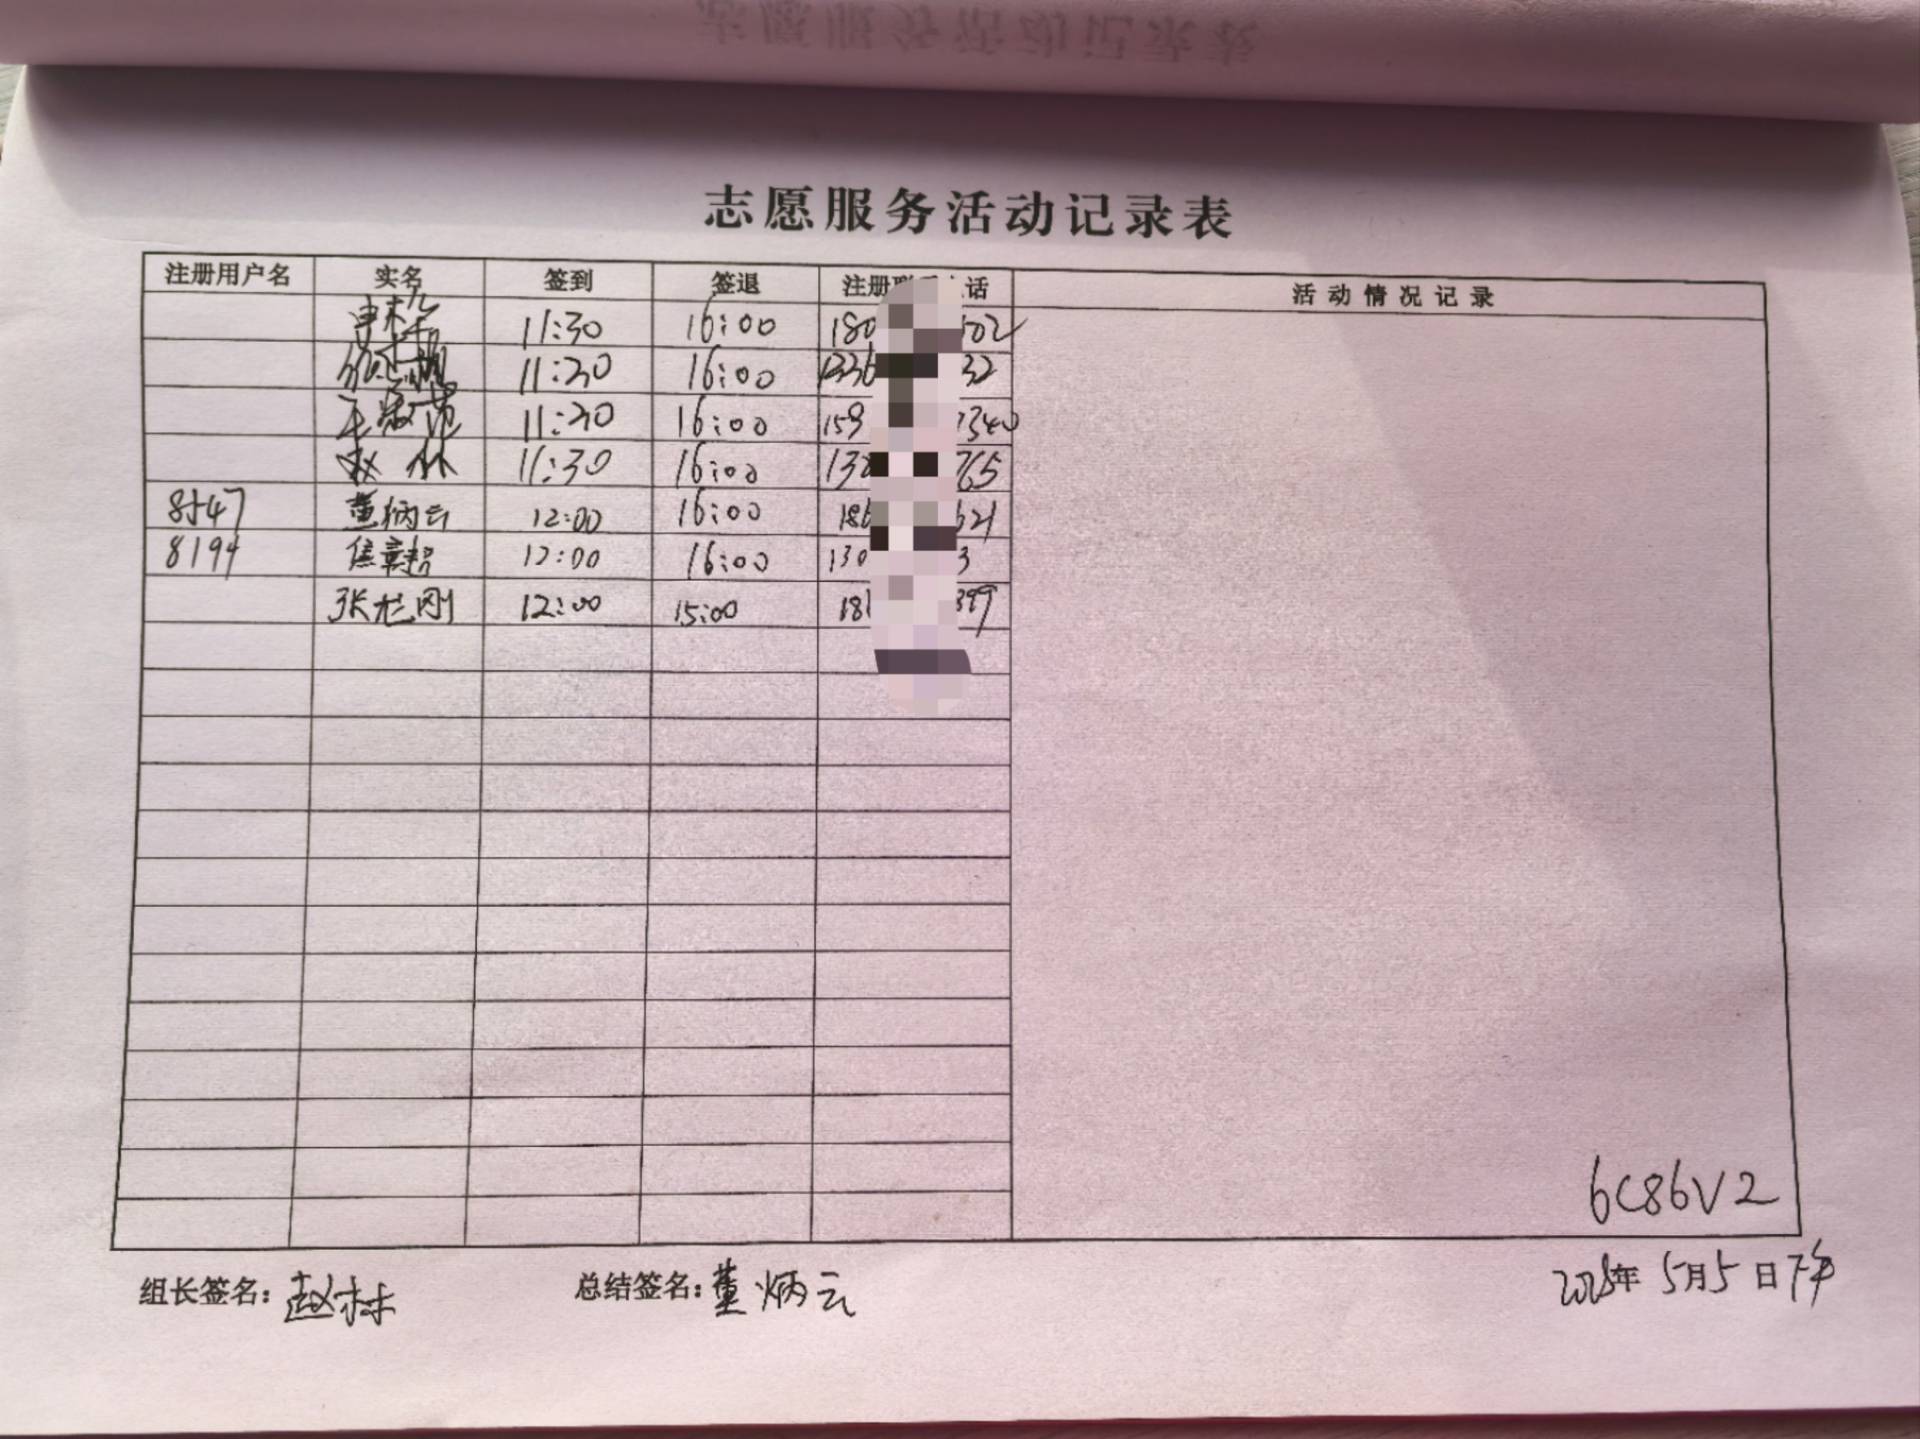 志愿服务活动记录表
注册用户名 实名 签到 签退 注册 话 活动情况记录
11:30 16:00 180 602
11:30 16:00 1336 32
11:30 16:00 159 1340
赵林 11:30 16:00 130 765
8547 董炳云 12:00 16:00 186 621
8194 焦章超 12:00 16:00 130 3
张龙刚 12:00 15:00 18 399
6C86V2
组长签名：赵林 总结签名：董炳云 2025年5月5日下午